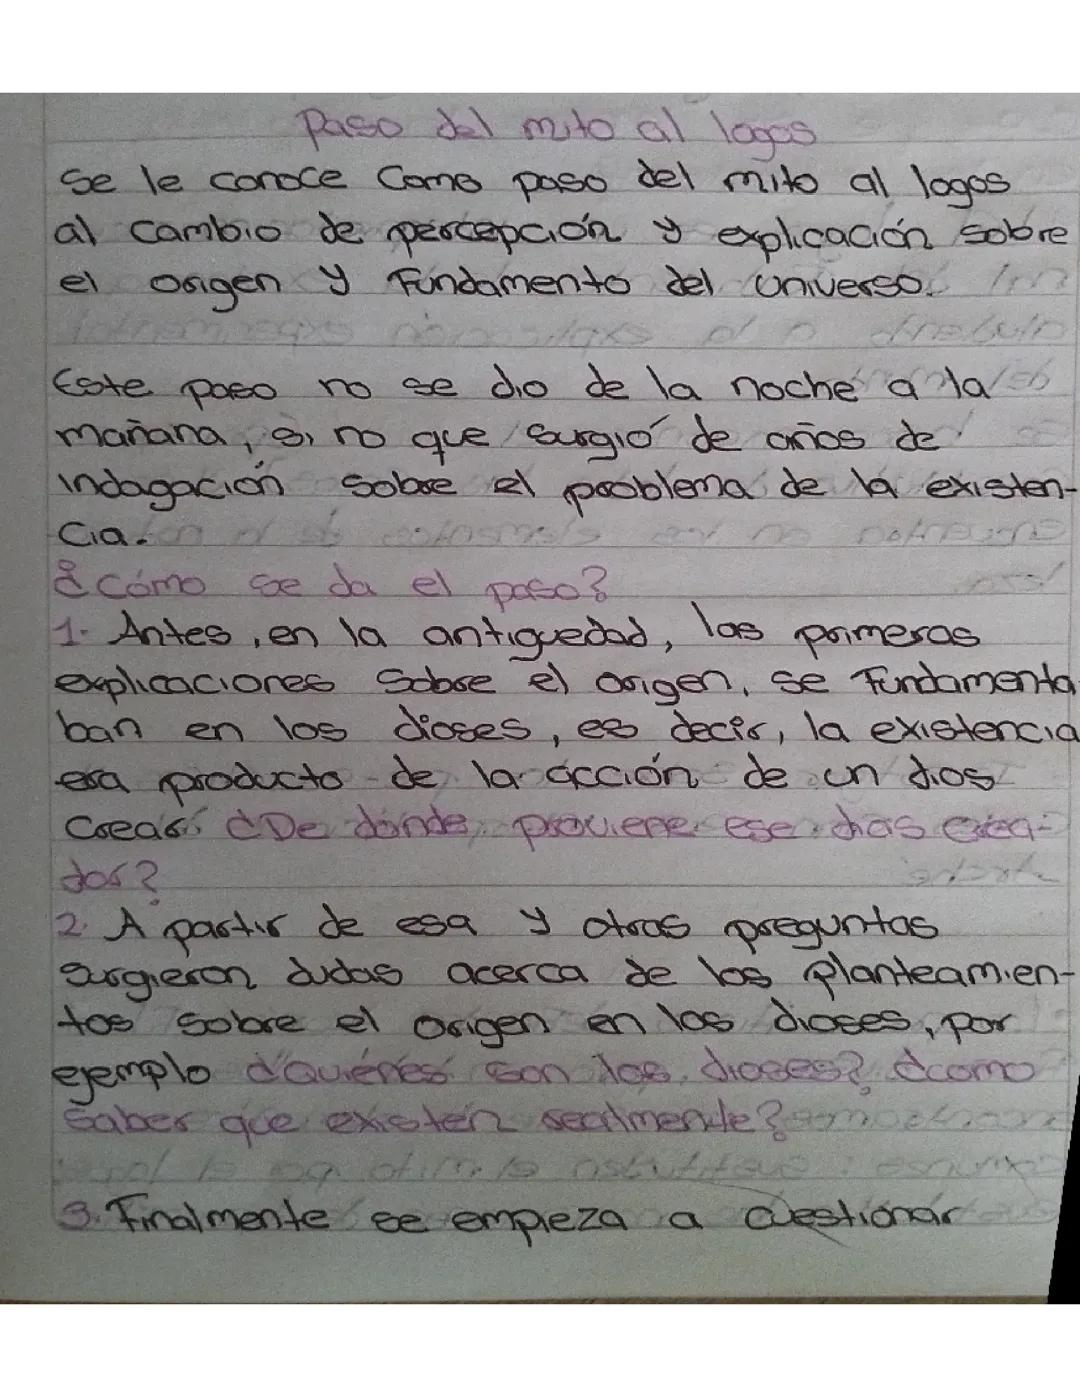 Paso del mito al logos
Se le conoce Como paso del mito al logos
al cambio de percepción y explicación sobre
el origen y Fundamento del universo.
Este paso no se dio de la noche a la
mañana, si no que surgió de años de
indagación sobre el problema de la existen-
cia.
¿Cómo se da el paso?
1. Antes, en la antiguedad, las primeras
explicaciones sobre el origen, se Fundamenta
ban en los dioses, es decir, la existencia
era producto de la acción de un dios
Crear. ¿De donde proviene ese dios crea-
dor?
2. A partir de esa y otras preguntas
surgieron dudas acerca de los planteamien-
tos sobre el origen en los dioses, por
ejemplo ¿Quiénes son los dioses? ¿como
saber que existen realmente?
3. Finalmente se empieza a cuestionar